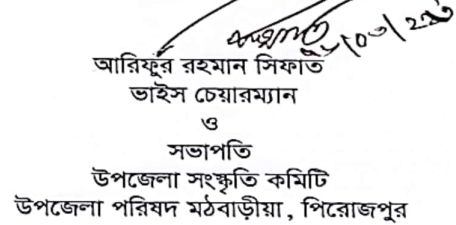 আরিফুর রহমান সিফাত
ভাইস চেয়ারম্যান
ও
সভাপতি
উপজেলা সংস্কৃতি কমিটি
উপজেলা পরিষদ মঠবাড়ীয়া, পিরোজপুর